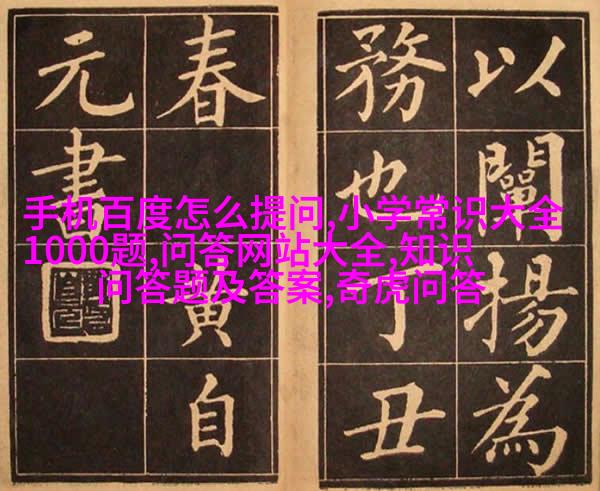 以闡揚為
務也丁丑
春
自
元書
手机百度怎么提问,小学常识大全
1000题,问答网站大全,知识
问答题及答案,奇虎问答